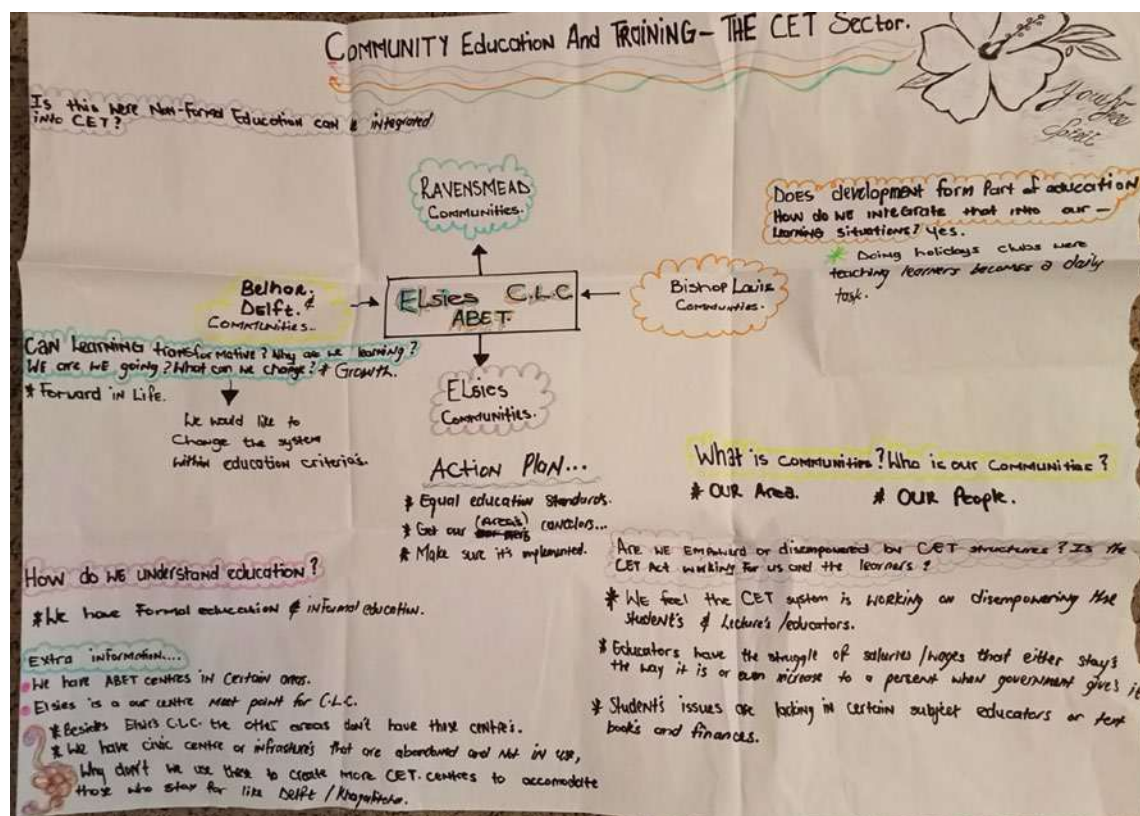 COMMUNITY Education And TRAINING - THE CET Sector.
Your
free
Spirit
Is this were Non-Formal Education can be integrated
into CET?
RAVENSMEAD
COMMUNITIES.
DOES development form Part of education
How do WE INTEGRATE that into our -
Learning situations? Yes.
* Doing holidays clubs were
teaching learners becomes a daily
task.
Belhar.
Delft. &
COMMUNITIES..
ELSIES C.L.C
ABET.
Bishop Lavis
COMMUNITIES.
CAN LEARNING transformative? Why are we learning?
WE are WE going? What can we change? * Growth.
* Forward in Life.
We would like to
Change the system
within education criteria's.
ELSIES
COMMUNITIES.
ACTION PLAN...
* Equal education Standards.
* Get our (Area's) cancelors...
* Make sure it's implemented.
What is COMMUNITIES? Who is our COMMUNITIES?
* OUR Area.
* OUR People.
How do WE understand education?
* We have Formal education & informal education.
Are WE EMPOWERD or disempowered by CET structures? Is the
CET Act working for us and the learners?
* WE feel the CET system is WORKING on disempowering the
student's & Lecture's/educators.
* Educators have the struggle of salaries/wages that either stay's
the way it is or even increase to a percent when government give's it
* Student's issues are lacking in certain subject educators or text
books and finances.
Extra information....
We have ABET centres in Certain areas.
Elsies is a our centre meet point for C.L.C.
* Besides Elsie's C.L.C. the other areas don't have these centre's.
* We have civic centre or that are abandoned and not in use,
Why don't we use these to create more CET. centres to accomodate
those who stay far like Delft /